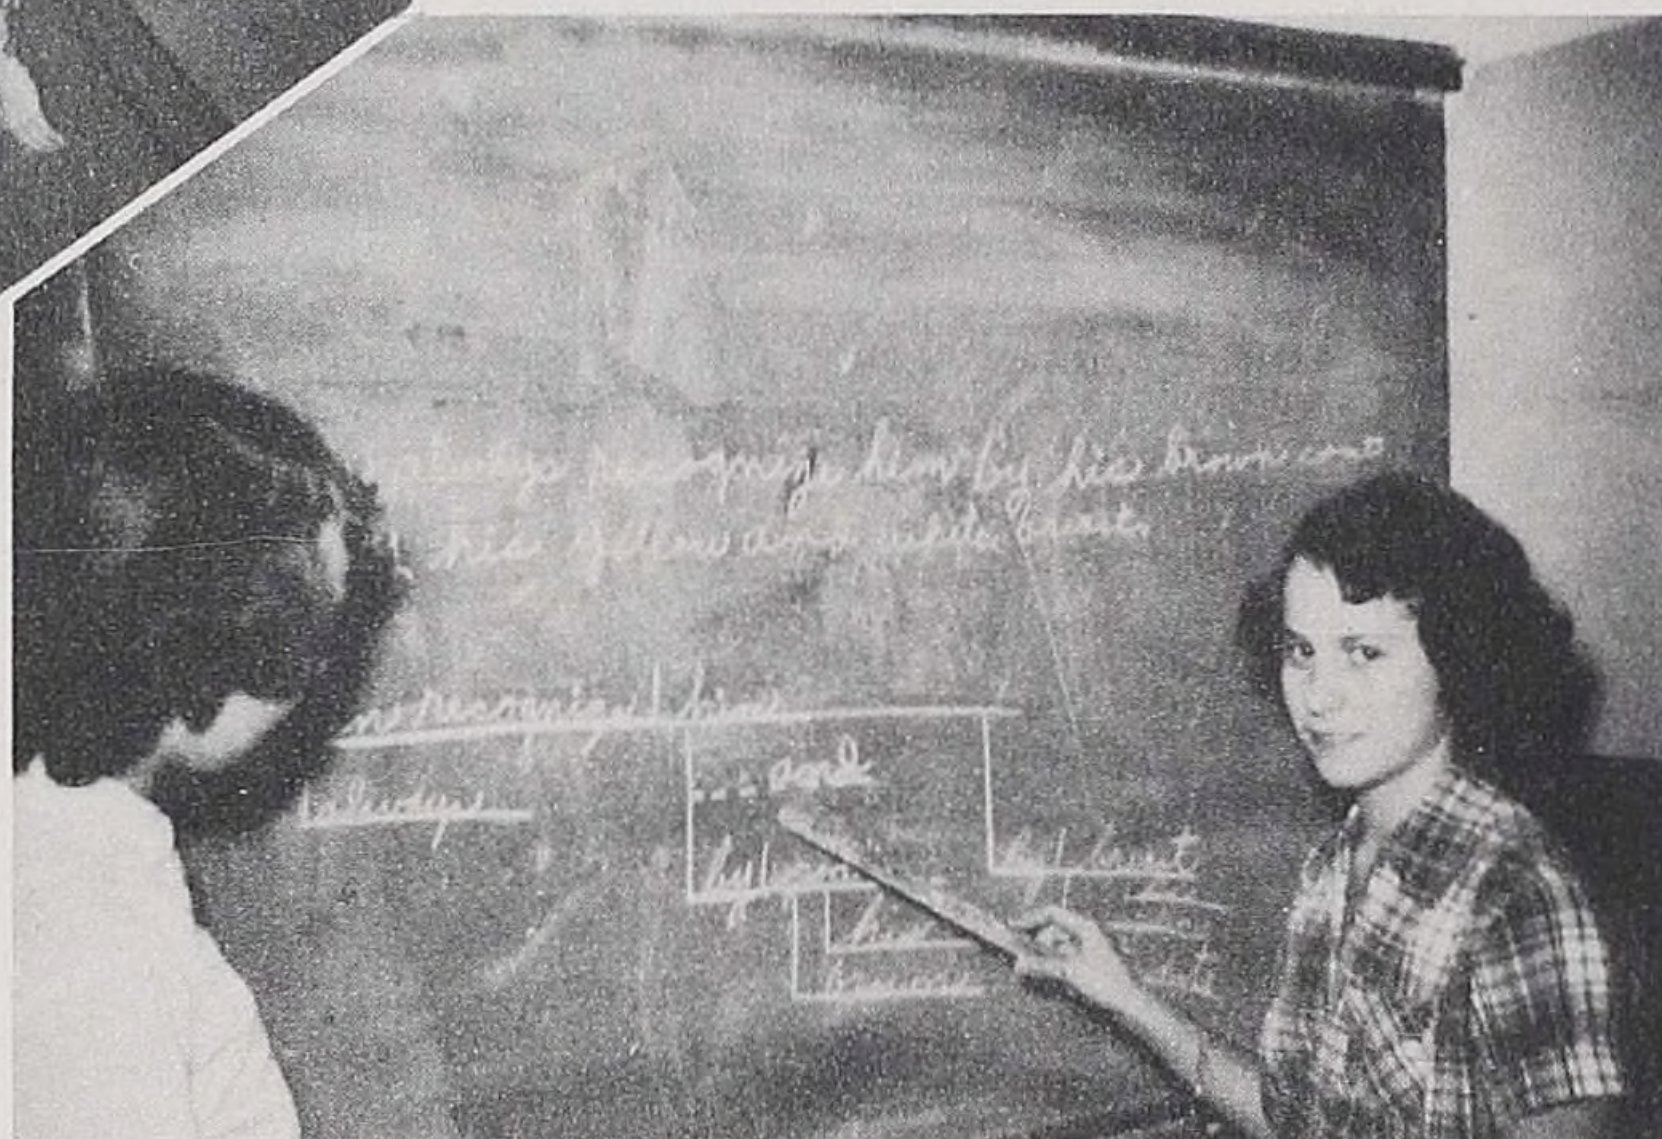 always recognize him by his brown coat
his yellow and white breast.
recognize him
always
and
by
by breast
his
brown